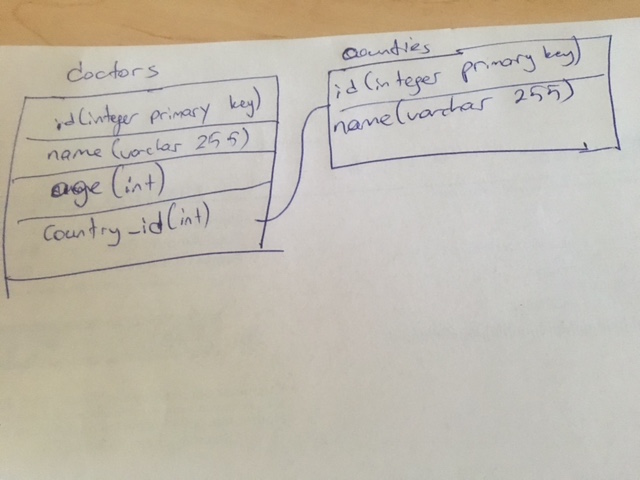 doctors
id(integer primary key)
name(varchar 255)
age(int)
country_id(int)
counties
id(integer primary key)
name(varchar 255)